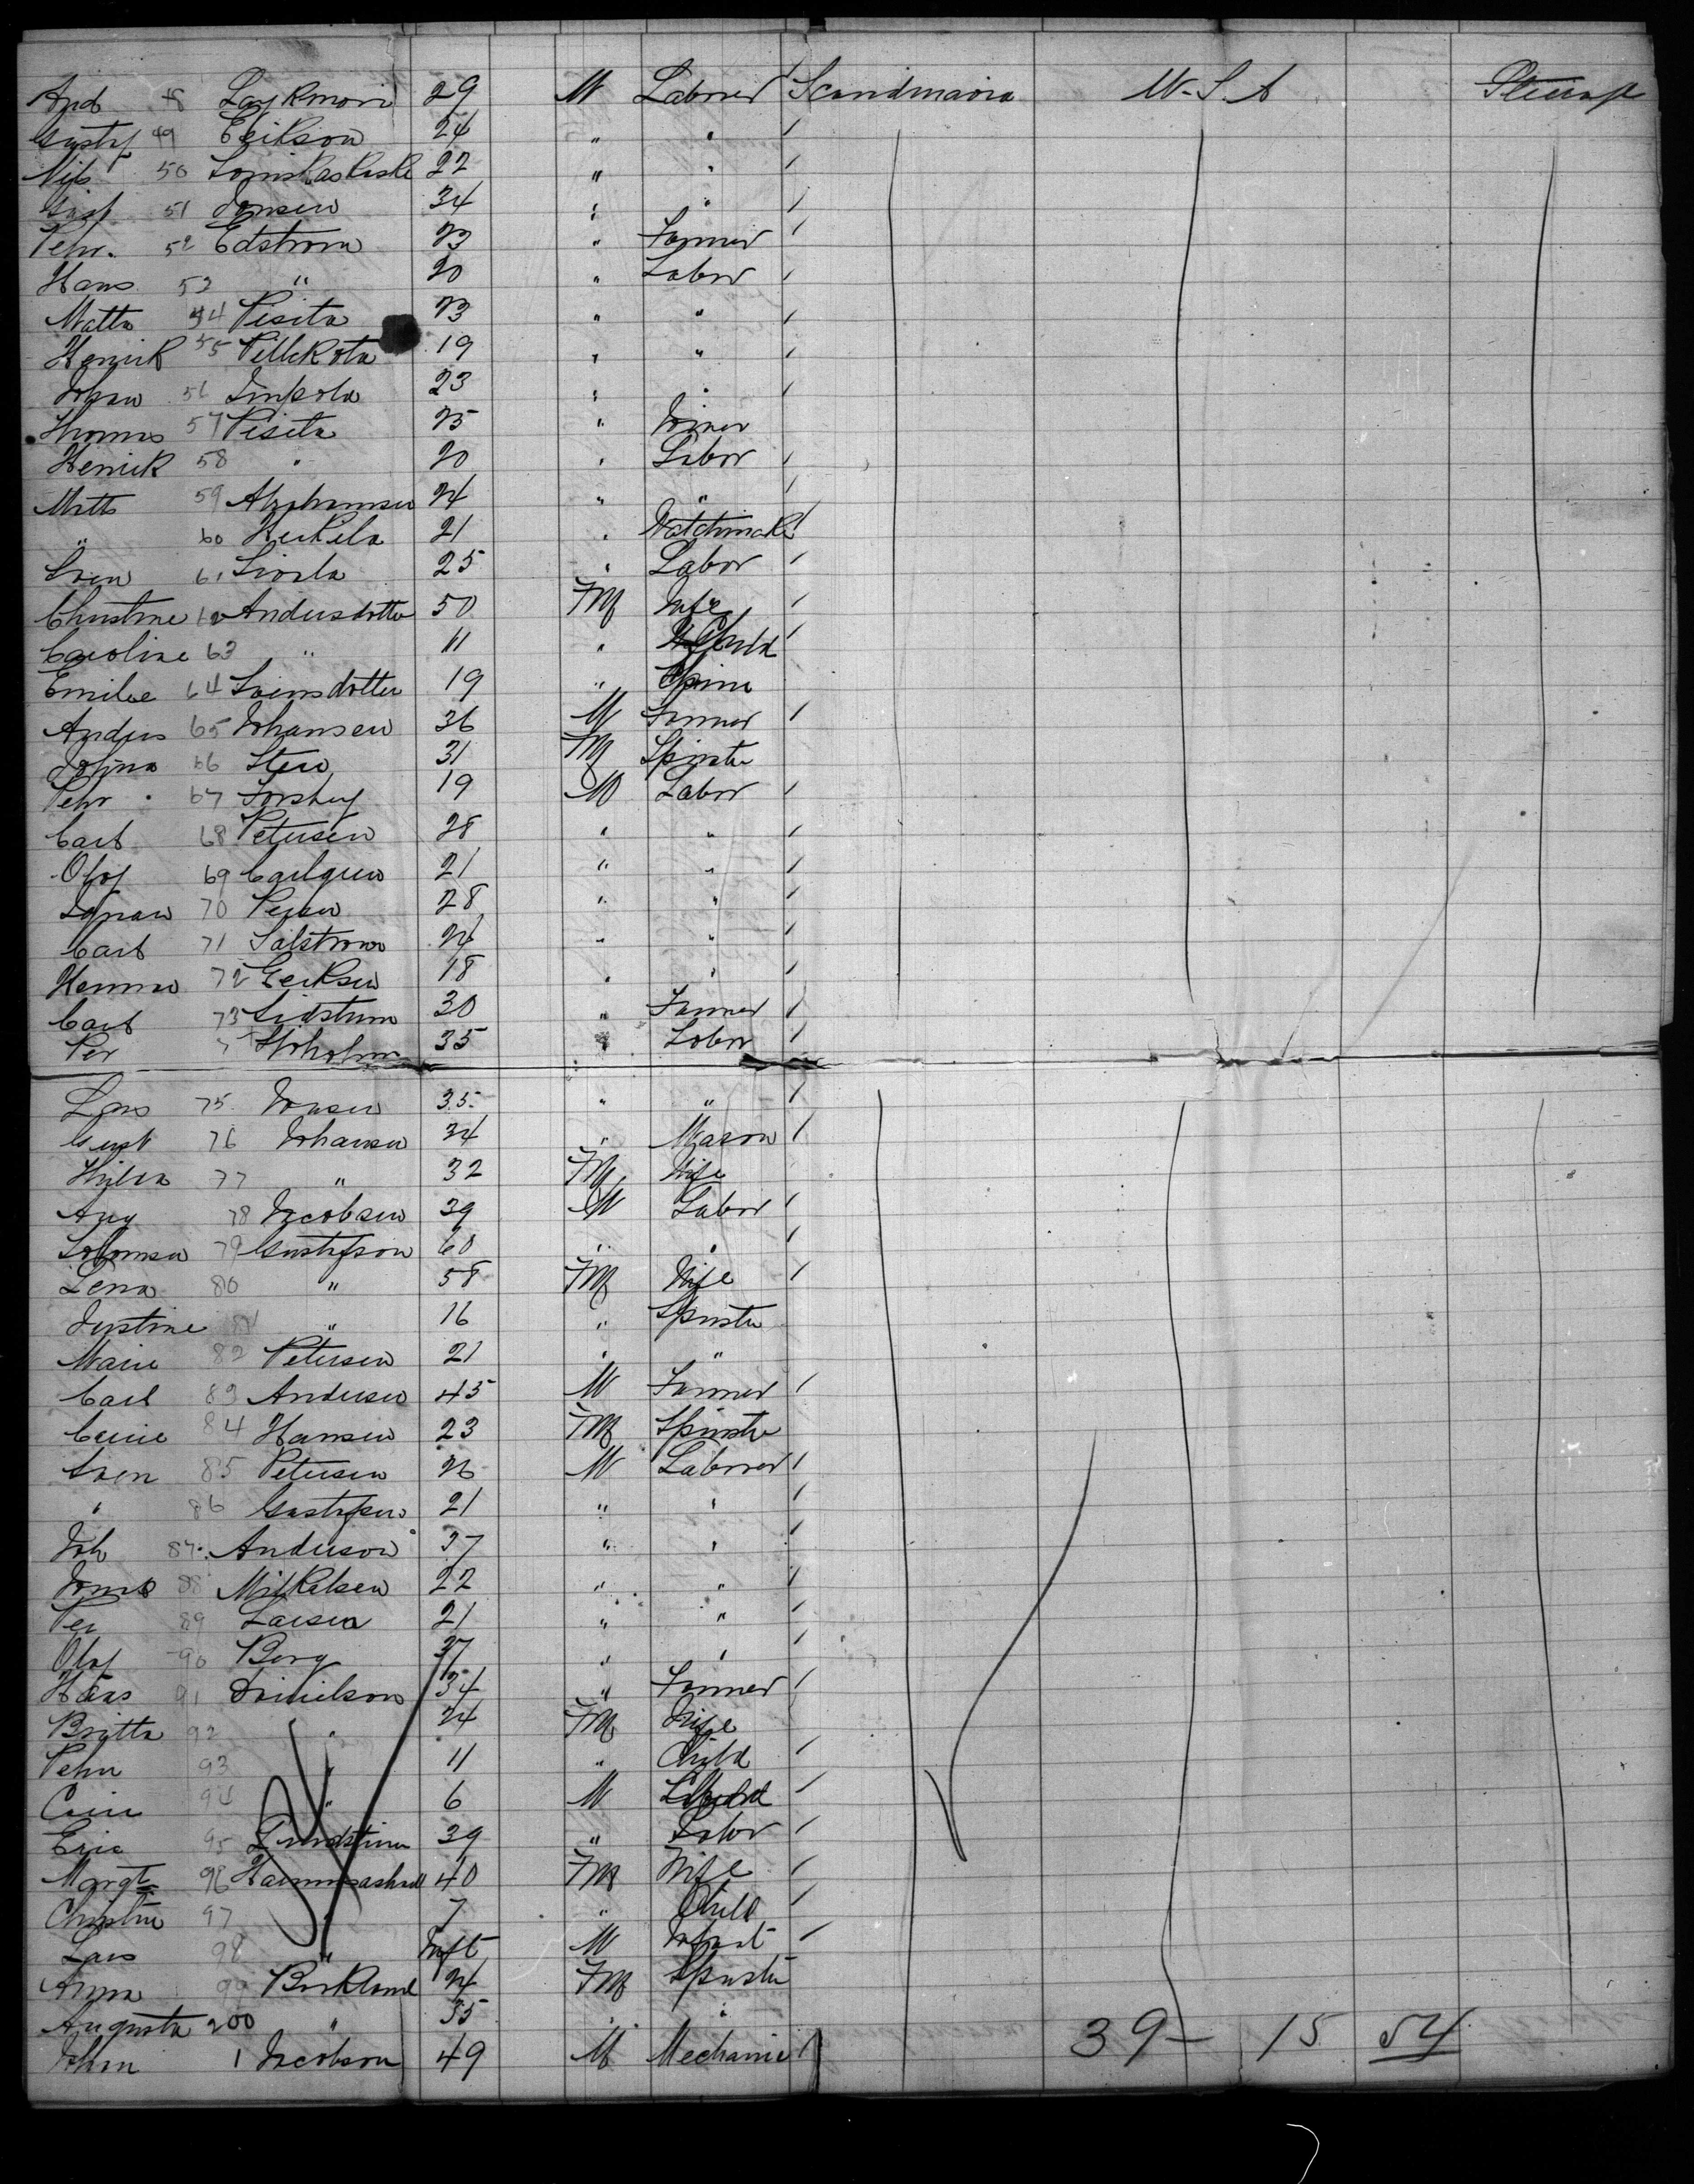 And 48 29 M Laborer Scandinavia U.S.A
Gustf 49 Erikson 24 " "
Nils 50 22 " "
Gust 51 Jansen 34 " "
Pehr. 52 Edstrom 23 " Farmer
Hans 53 " 20 " Labor
Matts 54 Pesita 23 " "
Henrik 55 19 " "
Johan 56 23 " "
Thomas 57 Pesita 25 "
Henrik 58 " 20 " Labor
Matts 59 Abrahamsen 24 " "
" 60 Heikela 21 " Watchmaker
Sven 61 25 " Labor
Christine 62 Andersdotter 50 Fm Wife
Caroline 63 " 11 " Child
Emilie 64 Svensdotter 19 "
Anders 65 Johansen 36 M Farmer
66 Sten 31 Fm Spinster
Pehr 67 Forsberg 19 M Labor
Carl 68 Petersen 28 " "
Olof 69 Carlgren 21 " "
Johan 70 28 " "
Carl 71 Salstrom 24 " "
Herman 72 Eriksen 18 " "
Carl 73 Lidstrom 30 " Farmer
Per 35 " Labor
Lars 75 Jonsen 35 " "
Gust 76 Johansen 34 " Mason
Hilda 77 " 32 Fm Wife
Aug 78 Jacobsen 39 M Labor
79 Gustafson 60 " "
Lena 80 " 58 Fm Wife
Justine 81 " 16 " Spinster
Marie 82 Petersen 21 " "
Carl 83 Andersen 45 M Farmer
84 Hansen 23 Fm Spinster
Sven 85 Petersen 26 M Laborer
" 86 Gustafsen 21 " "
Joh 87 Anderson 37 " "
Jonas 88 Mikkelsen 22 " "
Per 89 Larsen 21 " "
Olof 90 Berg 37 " "
Hans 91 Danielson 34 " Farmer
Britta 92 " 24 Fm Wife
Pehr 93 " 11 " Child
94 " 6 M Child
Eric 95 Lindstrom 39 " Labor
Margt 96 40 Fm Wife
Christine 97 " 7 " Child
Lars 98 " Inft M Infant
Anna 99 Borkland 24 Fm Spinster
Augusta 200 " 35 " "
John 1 Jacobson 49 M Mechanic
39 – 15 54